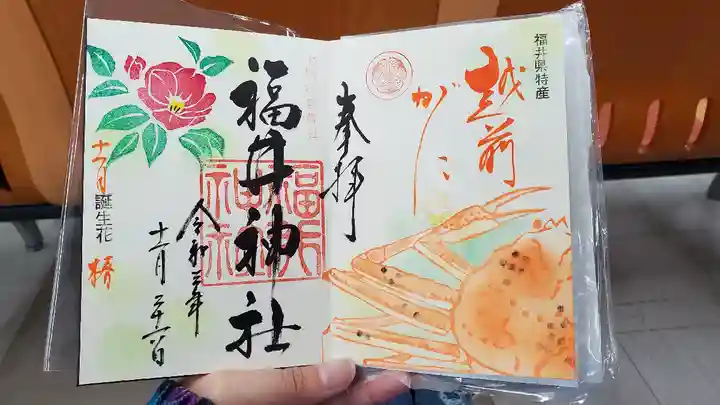 福井県特産
越前
がに
奉拝
福井神社
福井
神社
令和三年
十二月二十六日
十二月
誕生花
椿